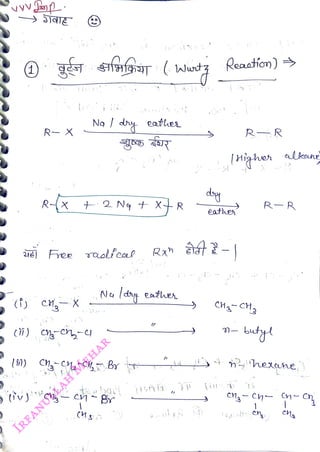 VVV Imp.
→ गवाह 😊
① वुर्टज अभिक्रिया ( Wurtz Reaction) ⇒
R- X Na / dry eather शुष्क ईथर R — R
(Higher alkane)
R-X + 2 Na + X-R dry eather R - R
यहाँ Free radical Rxn होती है -|
(i) CH3 - X Na /dry eather CH3-CH3
(ii) CH3-CH2-Cl " n- butyl
(iii) CH3-CH2-CH2-Br " n- hexane
(iv) CH3 - CH - Br " CH3 - CH - CH - CH3
CH3 CH3 CH3
IRFANULLAH MEHAR